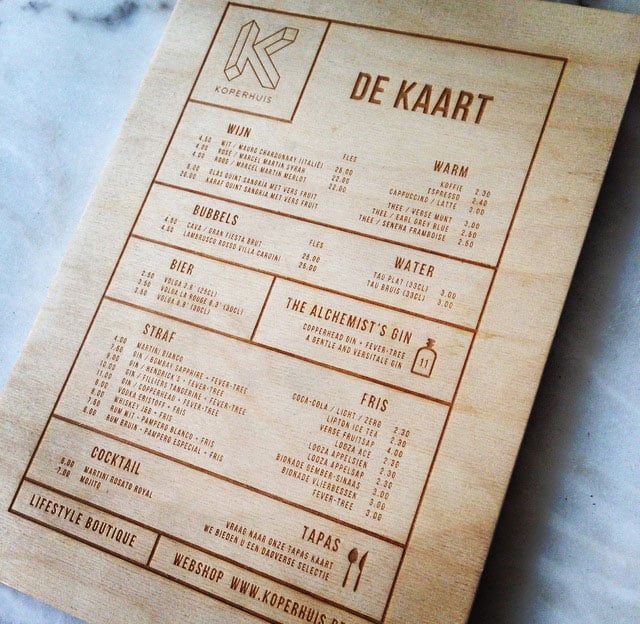 K
KOPERHUIS
DE KAART
WIJN
FLES
4.50 WIT / MAURO CHARDONNAY (ITALIË) 25.00
4.00 ROSE / MARCEL MARTIN SYRAH 22.00
4.00 ROOD / MARCEL MARTIN MERLOT 22.00
6.00 GLAS QUINT SANGRIA MET VERS FRUIT
20.00 KARAF QUINT SANGRIA MET VERS FRUIT
WARM
KOFFIE 2.30
ESPRESSO 2.40
CAPPUCCINO / LATTE 3.00
THEE / VERSE MUNT 3.00
THEE / EARL GREY BLUE 2.50
THEE / SENCHA FRAMBOISE 2.50
BUBBELS
FLES
4.50 CAVA / GRAN FIESTA BRUT 25.00
4.50 LAMBROSCO ROSSO VILLA CARDINI 25.00
WATER
TAU PLAT (33CL) 3.00
TAU BRUIS (33CL) 3.00
BIER
2.50 VOLGA 3.6° (25CL)
3.50 VOLGA LA ROUGE 8.3° (30CL)
3.50 VOLGA 8.8° (30CL)
THE ALCHEMIST'S GIN
COPPERHEAD GIN + FEVER-TREE
A GENTLE AND VERSITALE GIN
11
STRAF
4.00 MARTINI BIANCO
GIN / BOMBAY SAPPHIRE + FEVER-TREE
GIN / HENDRICK'S + FEVER-TREE
GIN / FILLIERS TANGERINE + FEVER-TREE
GIN / COPPERHEAD + FEVER-TREE
VODKA ERISTOFF + FRIS
WHISKEY J&B + FRIS
RUM WIT - PAMPERO BLANCO + FRIS
8.00 RUM BRUIN - PAMPERO ESPECIAL + FRIS
FRIS
COCA-COLA / LIGHT / ZERO 2.30
LIPTON ICE TEA 2.30
VERSE FRUITSAP 4.00
LOOZA ACE 2.30
LOOZA APPELSIEN 2.30
LOOZA APPELSAP 2.30
BIONADE GEMBER-SINAAS 3.00
BIONADE VLIERBESSEN 3.00
FEVER-TREE 3.00
COCKTAIL
6.00 MARTINI ROSATO ROYAL
7.00 MOJITO
TAPAS
VRAAG NAAR ONZE TAPAS KAART
WE BIEDEN U EEN DAGVERSE SELECTIE
LIFESTYLE BOUTIQUE
WEBSHOP WWW.KOPERHUIS.BE